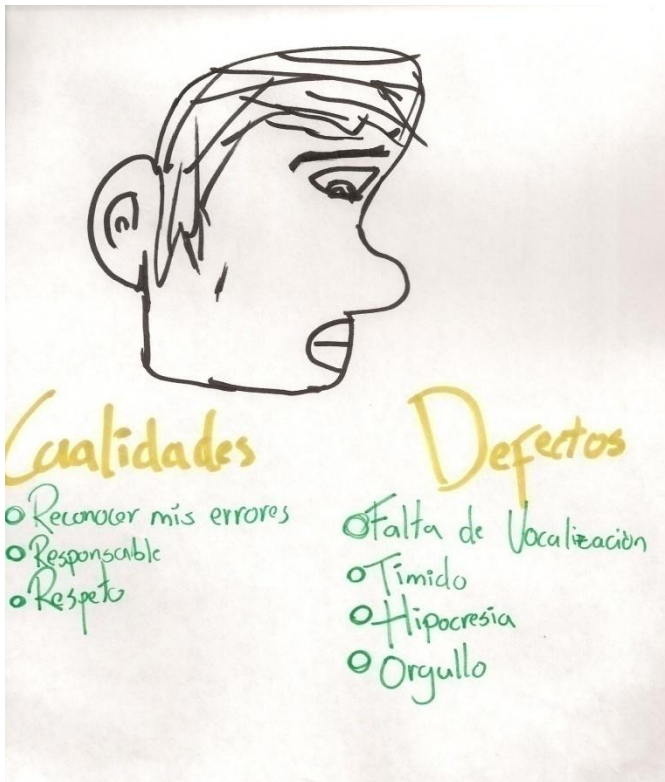 Cualidades
Reconocer mis errores
Responsable
Respeto
Defectos
Falta de Vocalización
Timido
Hipocresia
Orgullo